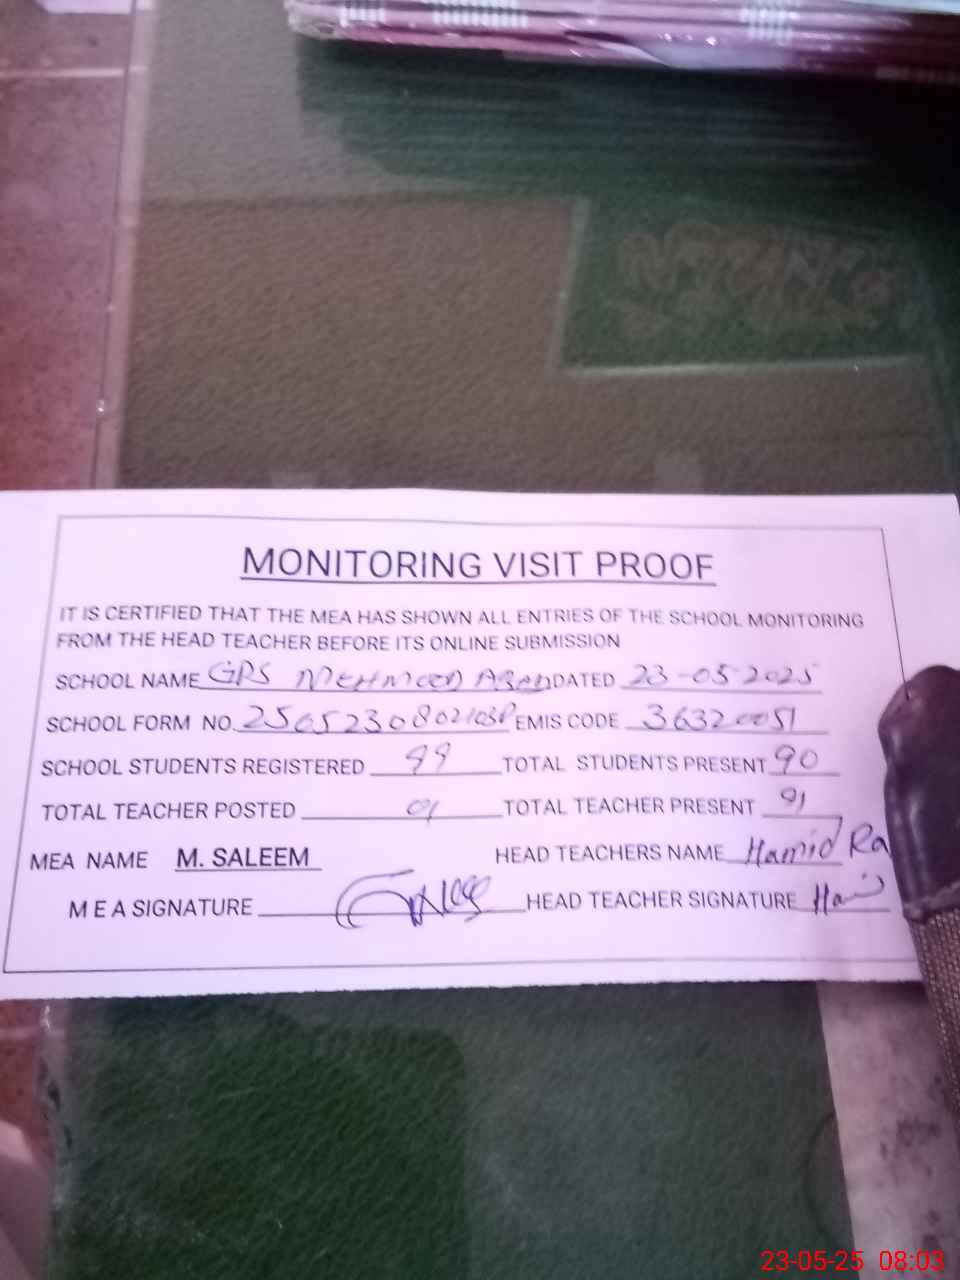 MONITORING VISIT PROOF
IT IS CERTIFIED THAT THE MEA HAS SHOWN ALL ENTRIES OF THE SCHOOL MONITORING
FROM THE HEAD TEACHER BEFORE ITS ONLINE SUBMISSION
SCHOOL NAME GPS MEHMOOD ABAD DATED 23-05-2025
SCHOOL FORM NO. EMIS CODE 36320051
SCHOOL STUDENTS REGISTERED 99 TOTAL STUDENTS PRESENT 90
TOTAL TEACHER POSTED 01 TOTAL TEACHER PRESENT
MEA NAME M. SALEEM HEAD TEACHERS NAME Hamid Ra
M E A SIGNATURE HEAD TEACHER SIGNATURE
23-05-25 08:03